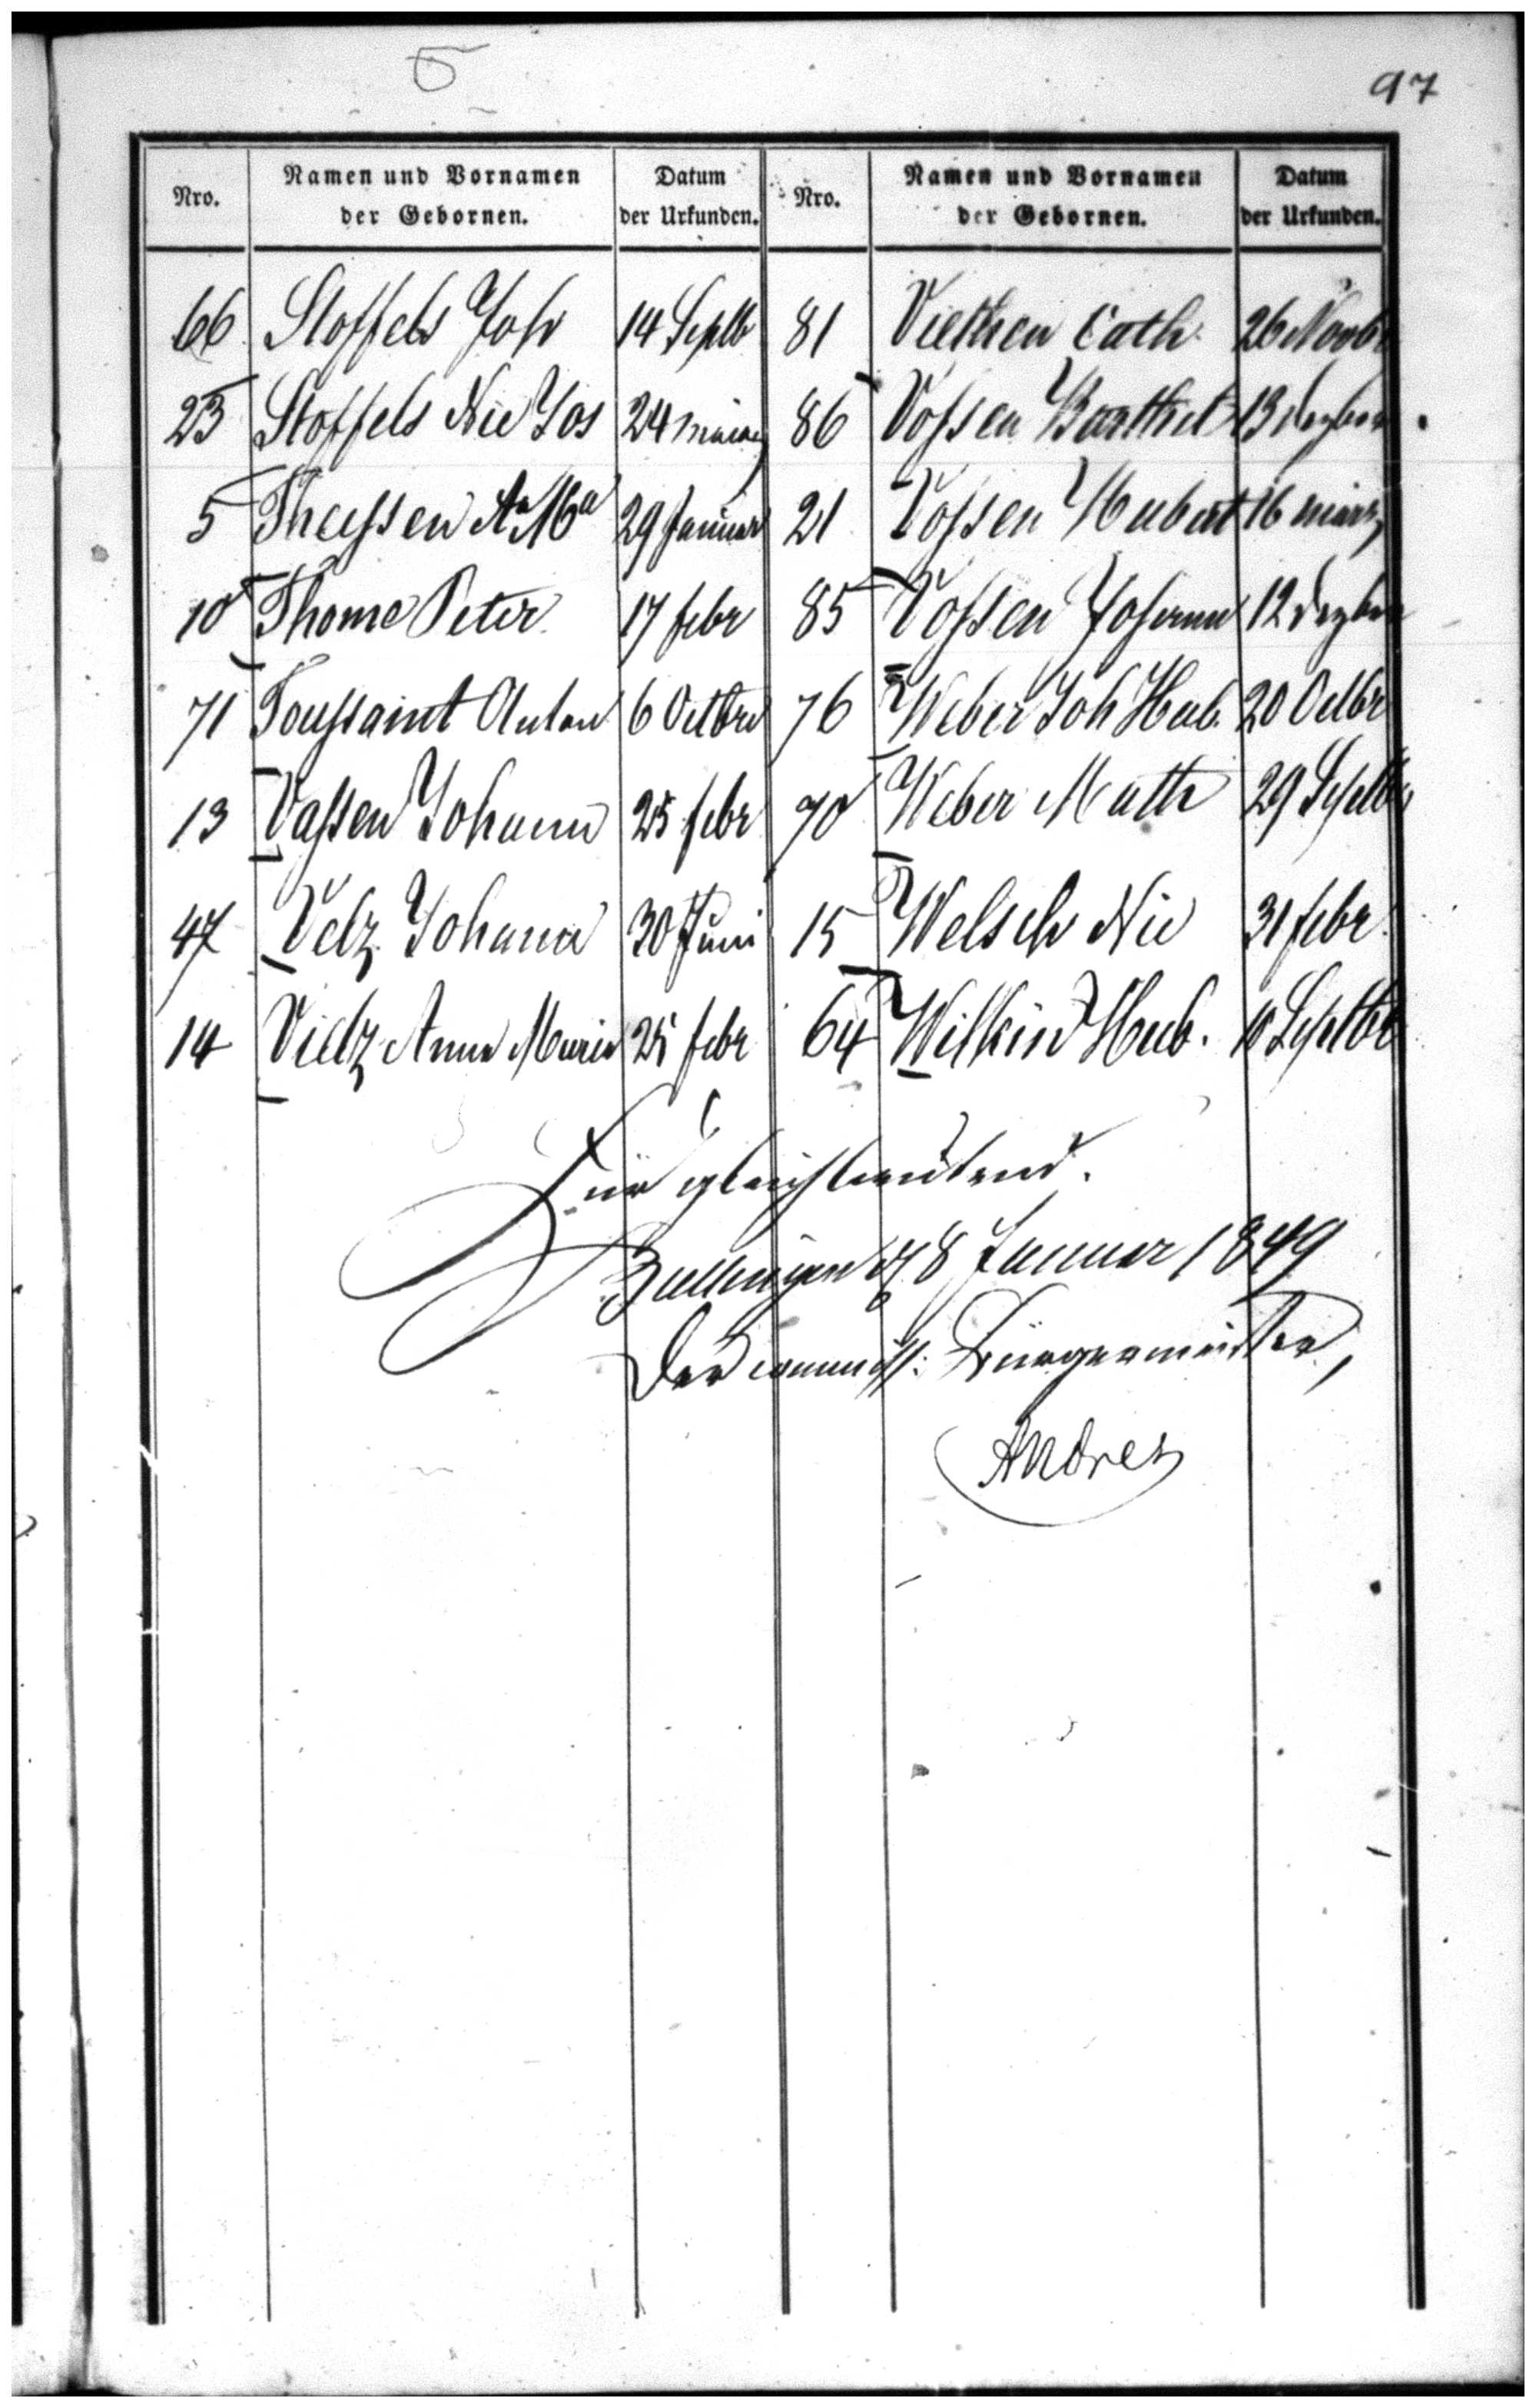 5
97
Nro. Namen und Vornamen der Gebornen. Datum der Urkunden. Nro. Namen und Vornamen der Gebornen. Datum der Urkunden.
66 Stoffels Joh 14 Septb 81 Viethen Cath. 26 Novbr
23 Stoffels Nic Jos 24 märz 86 Voſsen Barthel 13 dezber
5 Theyſsen An Ma 29 Januar 21 Voſsen Hubert 16 märz
10 Thome Peter 17 febr 85 Voſsen Johann 12 dezber
71 Touſsaint Anton 6 Octbr 76 Weber Joh Hub. 20 Octbr
13 Vaſsen Johann 25 febr 70 Weber Math 29 Septbr
47 Velz Johann 30 Juni 15 Welsch Nic 31 febr.
14 Vielz Anna Maria 25 febr 64 Wilkin Hub. 10 Septbr
Für gleichlautend.
8 Januar 1849
Der commiſſ: Bürgermeister,
Andres